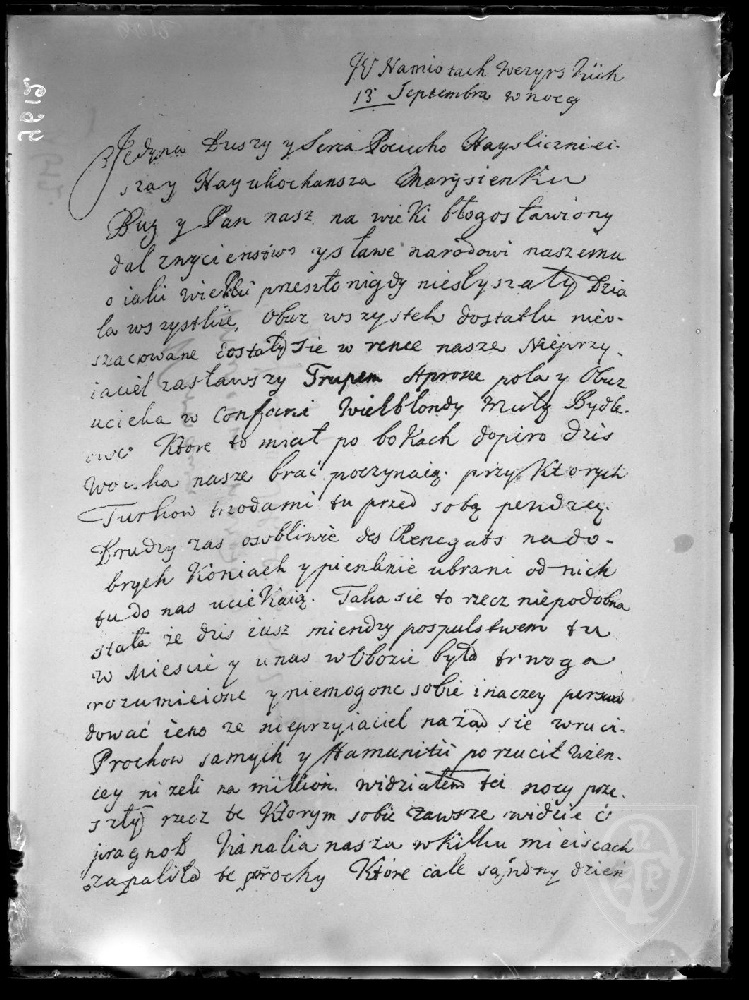 W Namiotach Wezyrskich
13 Septembra w nocy
Jedyna Duszy y Serca Pociecho Naysliczniei-
szay Nayukochansza Marysienku
Bug y Pan nasz na wieki błogosławiony
dał zwycienstwo y sławe narodowi naszemu
o iakii wieki przeszło nigdy niesłyszały Dzia
ła wszystkie, Obuz wszystek dostatku nieo-
szacowane dostały sie w rence nasze Nieprzy-
iaciel zasławszy Trupem Aprosze pola y Obuz
ucieka w Confusii Wielblondy Muły Bydle-
Które to miał po bokach dopiro dzis
Woiska nasze brać poczynaią. przy Ktorych
Turkow trzodami tu przed sobą pendzeą.
Drudzy zas osobliwie des Renegats na do-
brych Koniach y pienknie ubrani od nich
tu do nas uciekaią. Taka sie to rzecz niepodobna
stała że dzis iusz miendzy pospulstwem tu
w Miescie y u nas w Obozie była trwoga
rozumieione y niemogone sobie inaczey perswa
dować ieno ze nieprzyiaciel nazad sie wruci.
Prochow samych y Hamunitii porzucił wien-
cey ni żeli na million. widziałem tei nocy prze-
szły rzecz te Ktorym sobie zawsze widzie ć
pragnoł Kanalia nasza w kilku mieiscach
zapaliła te prochy Które całe sądny dzień